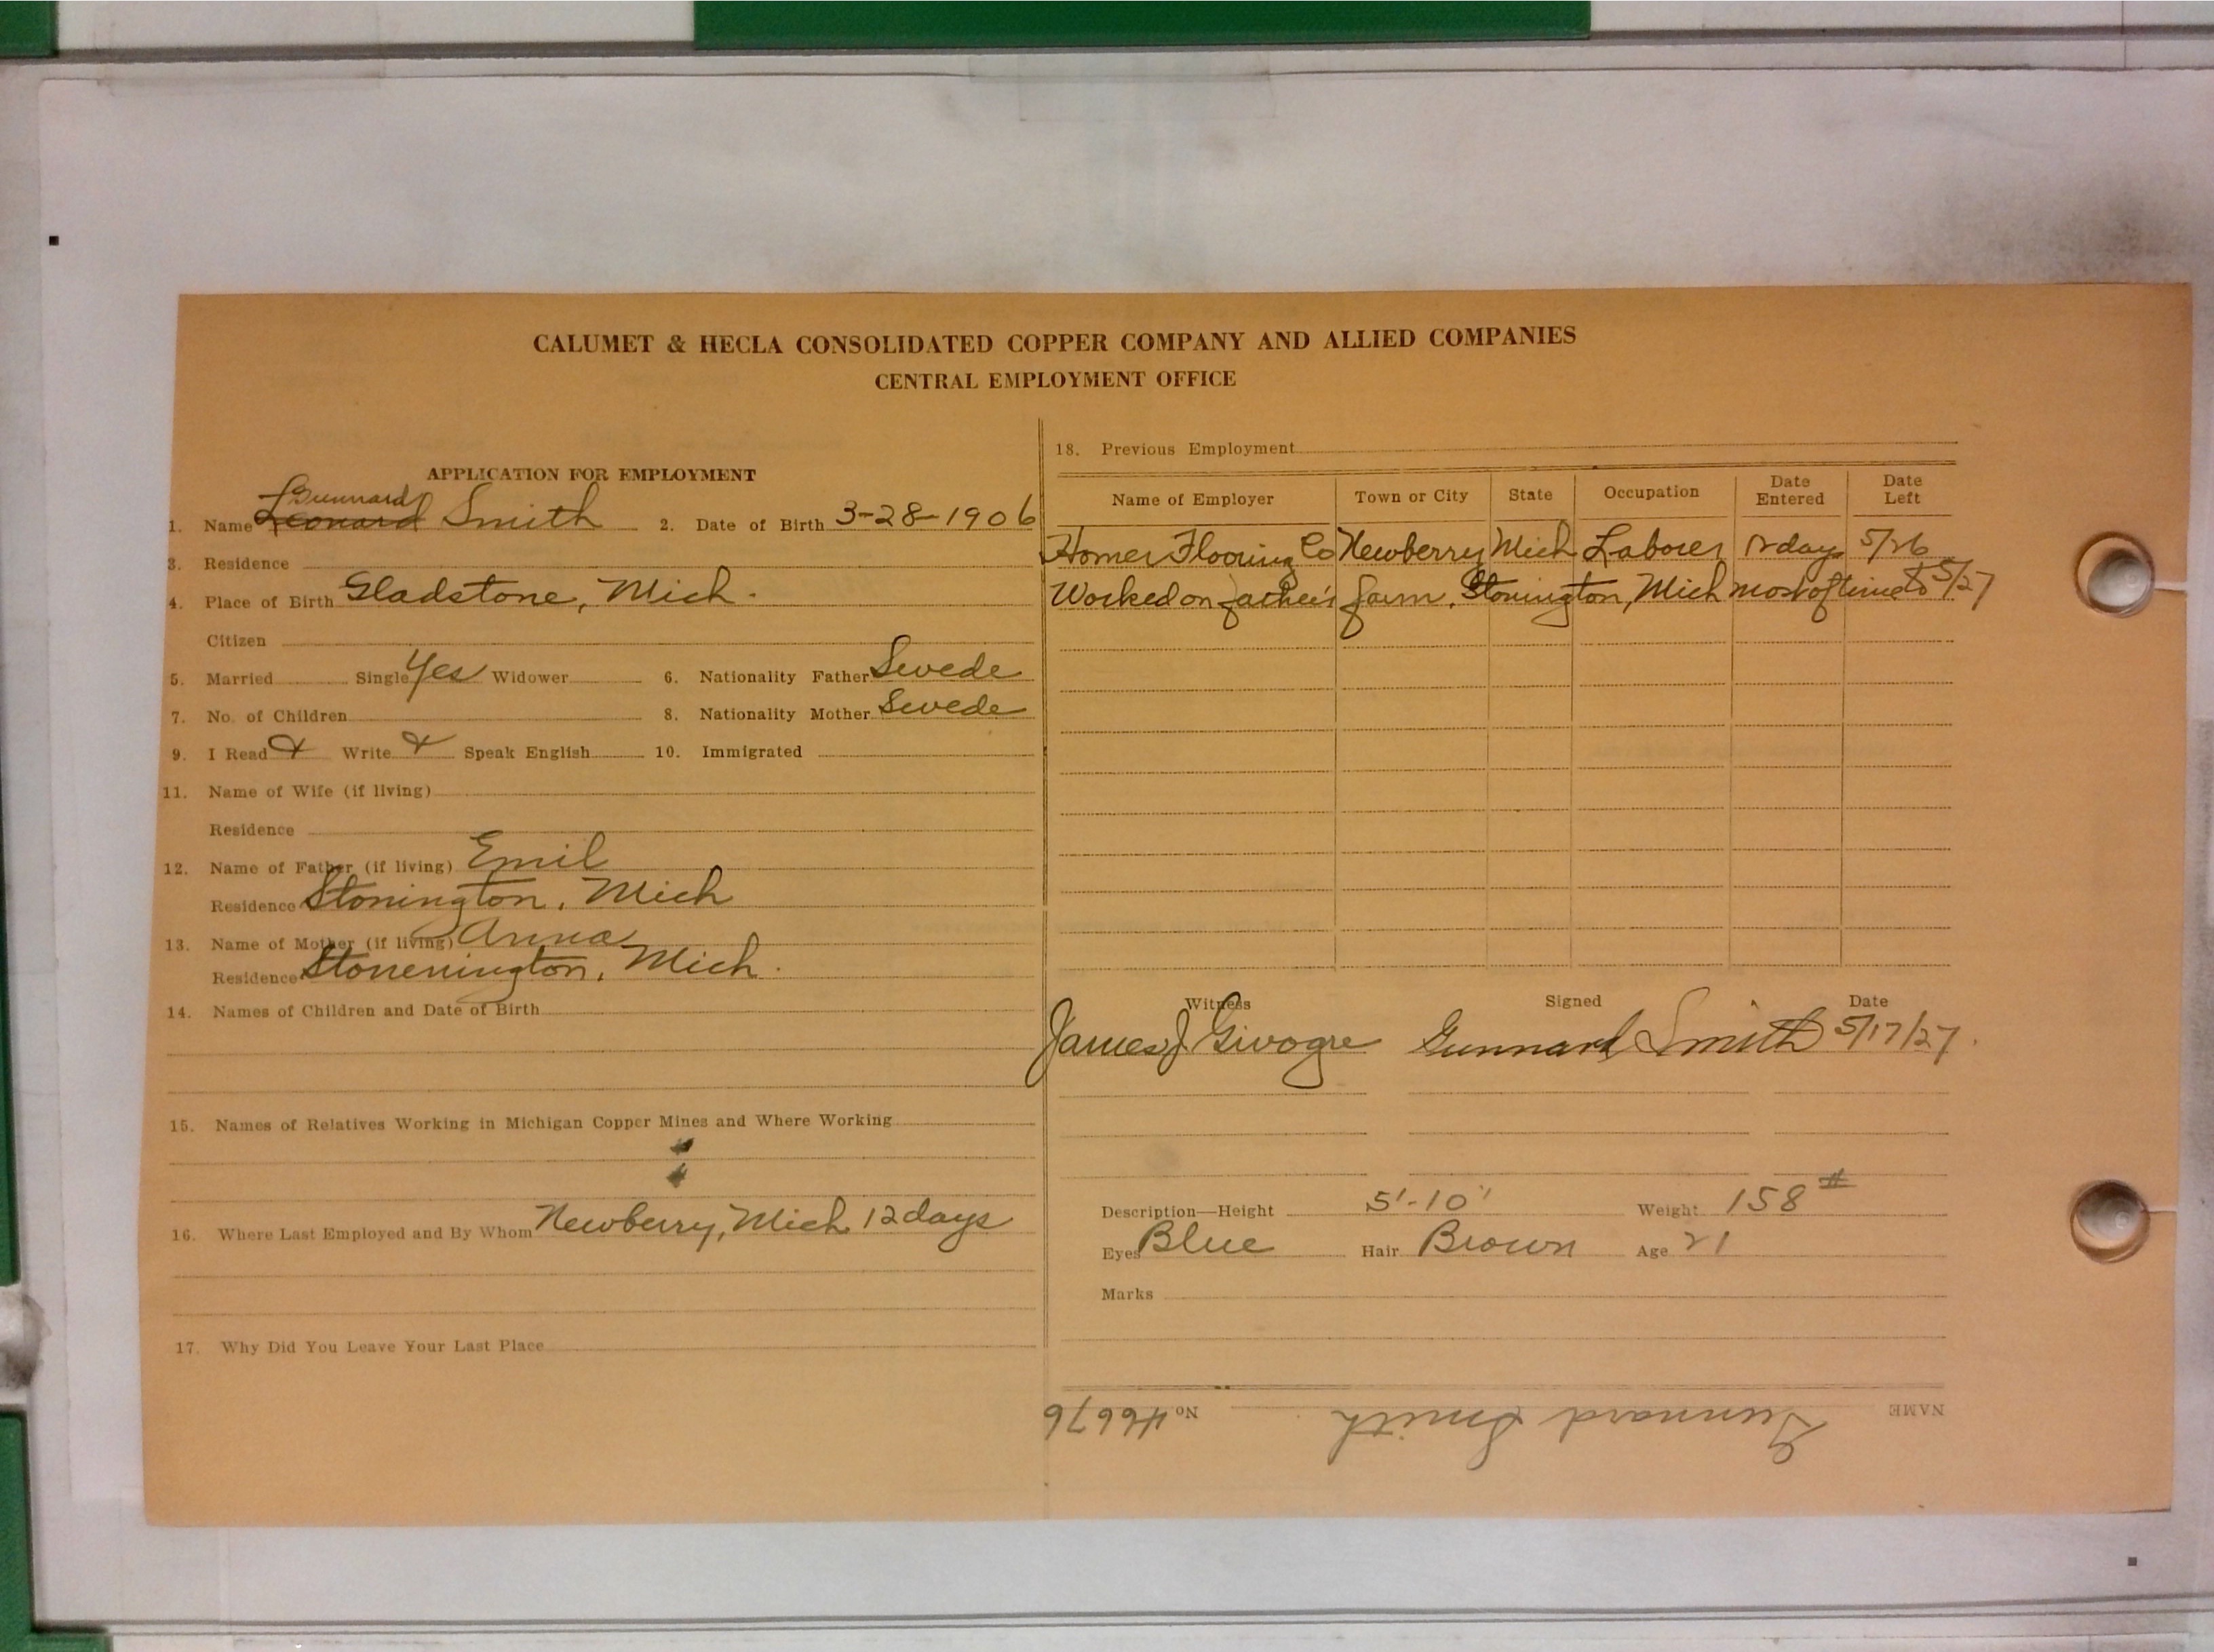 CALUMET & HECLA CONSOLIDATED COPPER COMPANY AND ALLIED COMPANIES
CENTRAL EMPLOYMENT OFFICE
APPLICATION FOR EMPLOYMENT
Gunnard
1. Name Leonard Smith 2. Date of Birth 3-28-1906
3. Residence
4. Place of Birth Gladstone, Mich.
Citizen
5. Married Single Yes Widower 6. Nationality Father Swede
7. No. of Children 8. Nationality Mother Swede
9. I Read & Write & Speak English 10. Immigrated
11. Name of Wife (if living)
Residence
12. Name of Father (if living) Emil
Residence Stonington, Mich
13. Name of Mother (if living) Anna
Residence Stonenington, Mich.
14. Names of Children and Date of Birth
15. Names of Relatives Working in Michigan Copper Mines and Where Working
16. Where Last Employed and By Whom Newberry, Mich 12 days
17. Why Did You Leave Your Last Place
18. Previous Employment
Name of Employer Town or City State Occupation Date Entered Date Left
Homer Flooring Co Newberry Mich Laborer 12 days 5/26
Worked on father's farm, Stonington, Mich most of time to 5/27
Witness Signed Date
James J Givogre Gunnard Smith 5/17/27.
Description—Height 5'-10" Weight 158#
Eyes Blue Hair Brown Age 21
Marks
NAME Gunnard Smith No 46676